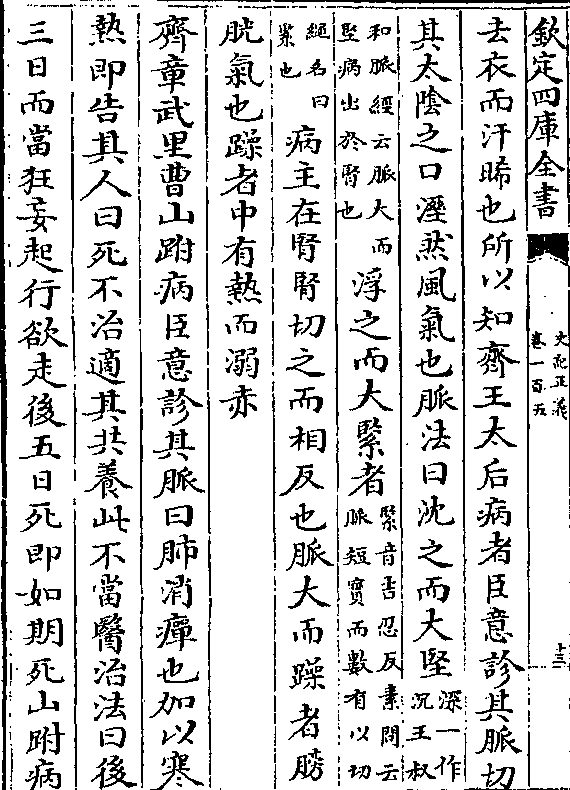 欽定四庫全書
史記正義
卷一百五
十三
去衣而汗晞也所以知齊王太后病者臣意診其脈切
其太陰之口溼然風氣也脈法曰沈之而大堅深一作沉王叔
和脈經云脈大而堅病出於腎也浮之而大緊者緊音吉忍反素問云脈短實而數有以切
繩名曰緊也病主在腎腎切之而相反也脈大而躁者膀
胱氣也躁者中有熱而溺赤
齊章武里曹山跗病臣意診其脈曰肺消癉也加以寒
熱即告其人曰死不治適其共養此不當醫治法曰後
三日而當狂妄起行欲走後五日死即如期死山跗病